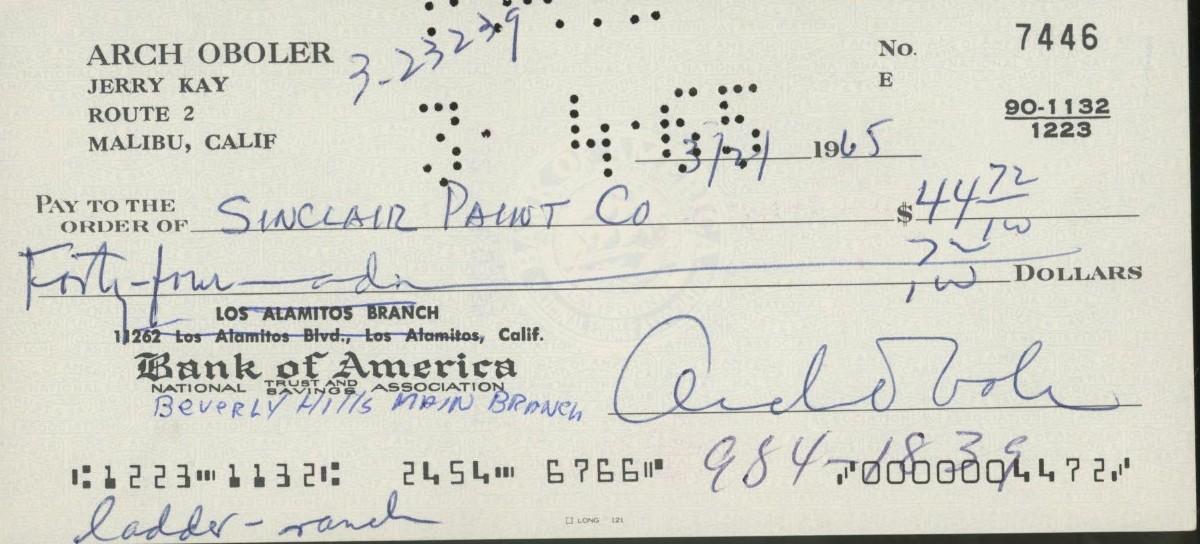 ARCH OBOLER
JERRY KAY
ROUTE 2
MALIBU, CALIF
3-23239
No. 7446
E
90-1132
1223
3.4.65
3/21 1965
PAY TO THE
ORDER OF SINCLAIR PAINT Co $44 72/100
Forty-four and 72/100 DOLLARS
LOS ALAMITOS BRANCH
11262 Los Alamitos Blvd., Los Alamitos, Calif.
Bank of America
NATIONAL TRUST AND SAVINGS ASSOCIATION
BEVERLY HILLS MAIN BRANCH
Arch Oboler
984-1839
1223 1132 2454 6766 0000004472
ladder - ranch
LONG 121